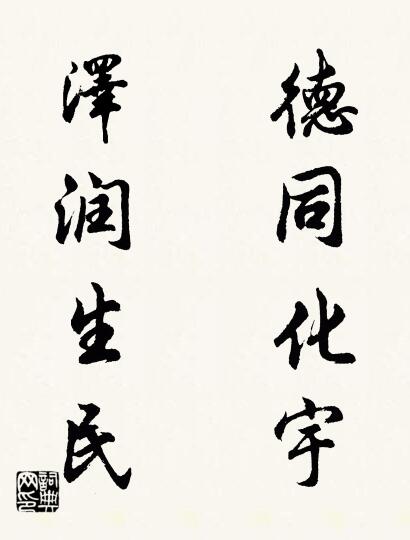 德同化宇
澤润生民
詞典网印